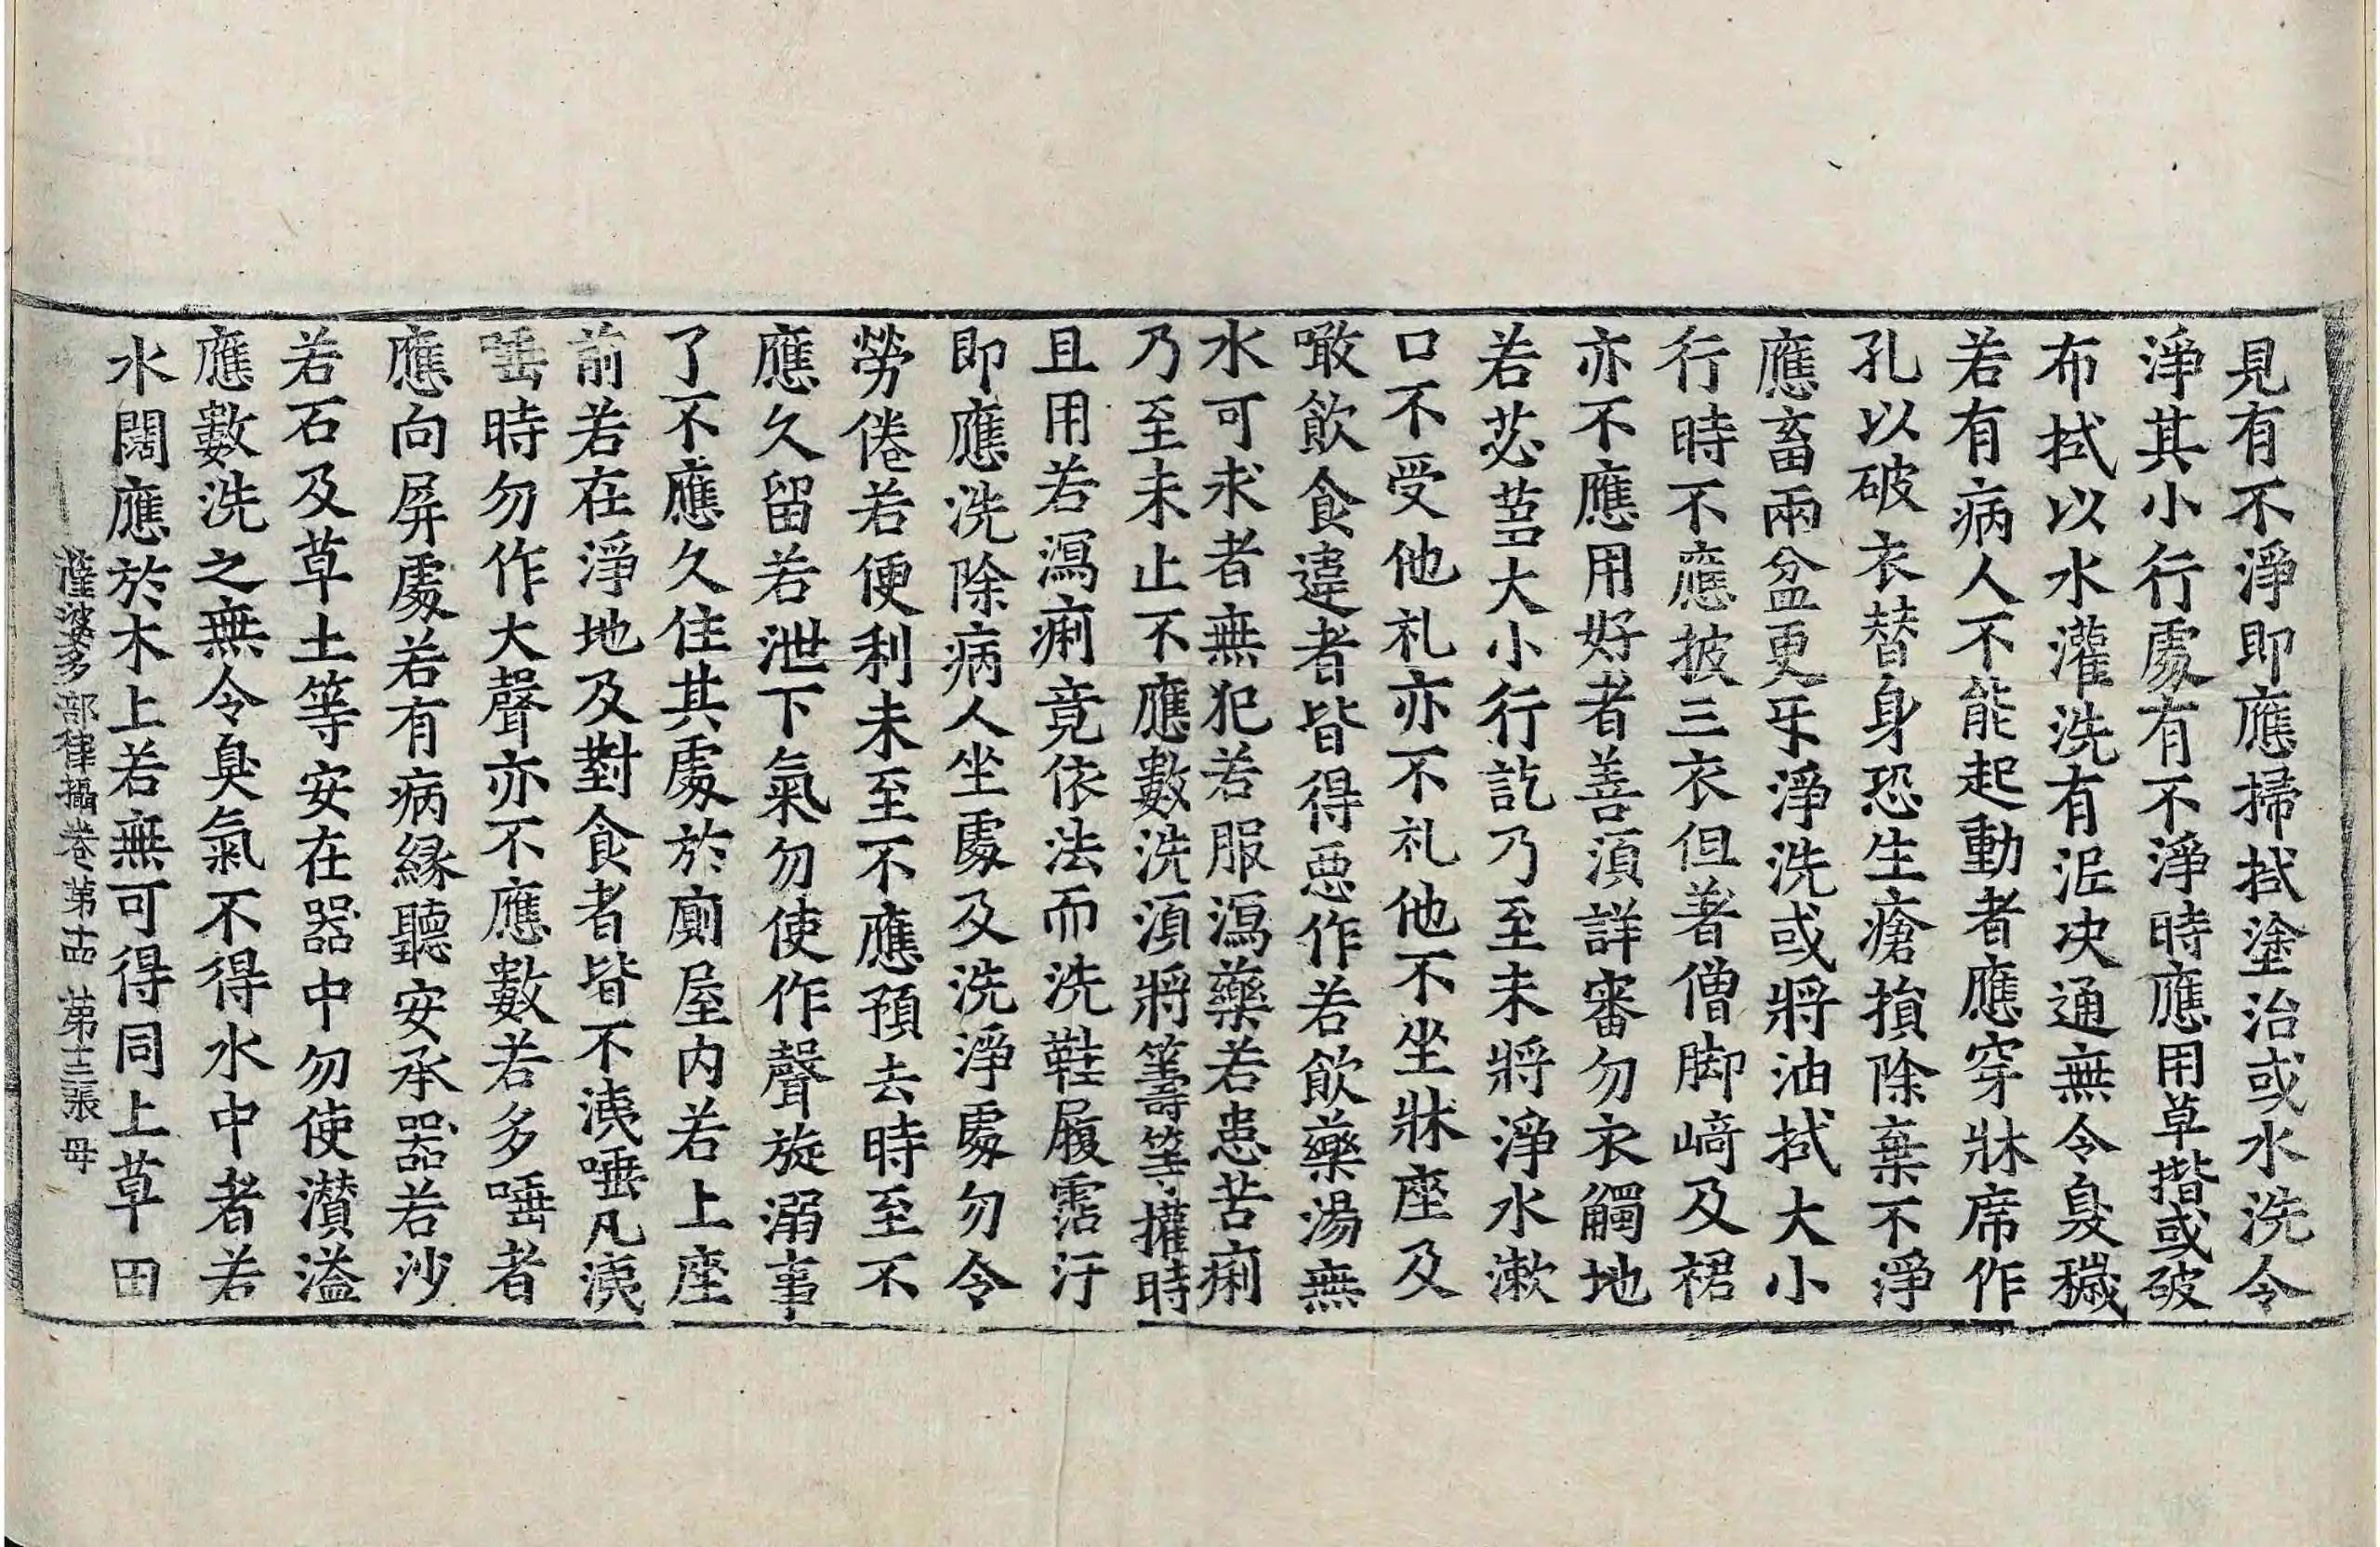 見有不淨即應掃拭塗治或水洗令
淨其小行處有不淨時應用草揩或破
布拭以水灌洗有泥决通無令臭穢
若有病人不能起動者應穿牀席作
孔以破衣替身恐生瘡損除棄不淨
應畜兩盆更㸦淨洗或將油拭大小
行時不應披三衣但著僧脚㟢及裙
亦不應用好者善湏詳審勿衣觸地
若苾芻大小行訖乃至未將淨水漱
口不受他礼亦不礼他不坐牀座及
噉飲食違者皆得惡作若飲藥湯無
水可求者無犯若服瀉藥若患苦痢
乃至未止不應數洗湏將籌等㩲時
且用若瀉痢竟依法而洗鞋履霑汙
即應洗除病人坐處及洗淨處勿令
勞倦若便利未至不應預去時至不
應久留若泄下氣勿使作聲旋溺事
了不應久住其處於廁屋内若上座
前若在淨地及對食者皆不洟唾凡洟
唾時勿作大聲亦不應數若多唾者
應向屏處若有病緣聽安承器若沙
若石及草土等安在器中勿使濽溢
應數洗之無令臭氣不得水中者若
水闊應於木上若無可得同上草田
薩婆多部律攝卷第十四 第三張 母